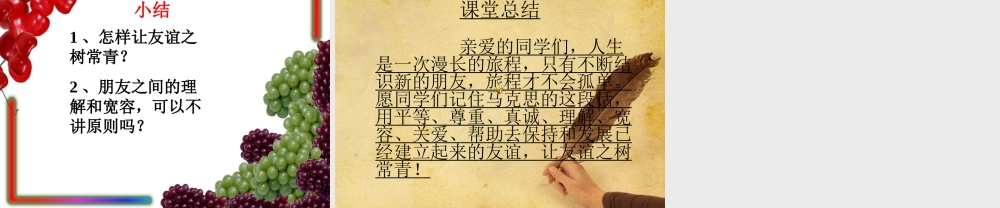 小结
1 、怎样让友谊之
树常青？
2 、朋友之间的理
解和宽容，可以不
讲原则吗？
课堂总结
亲爱的同学们，人生
是一次漫长的旅程，只有不断结
识新的朋友，旅程才不会孤单。
愿同学们记住马克思的这段话，
用平等、尊重、真诚、理解、宽
容、关爱、帮助去保持和发展已
经建立起来的友谊，让友谊之树
常青！